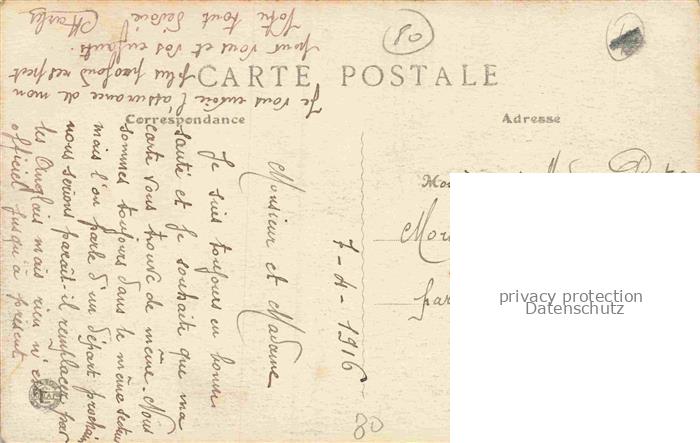 CARTE POSTALE
Correspondance
Adresse
80
7-4-1916
Monsieur et Madame
Je suis toujours en bonne
santé et je souhaite que ma
carte vous trouve de même. Nous
sommes toujours dans le même secteur
mais l'on parle d'un départ prochain
nous serions parait-il remplacés par
les Anglais mais rien n'est
officiel jusqu'à présent
Je vous envoie l'assurance de mon
plus profond respect
pour vous et vos enfants.
Votre tout dévoué
Charles
Mor
par
80
privacy protection
Datenschutz